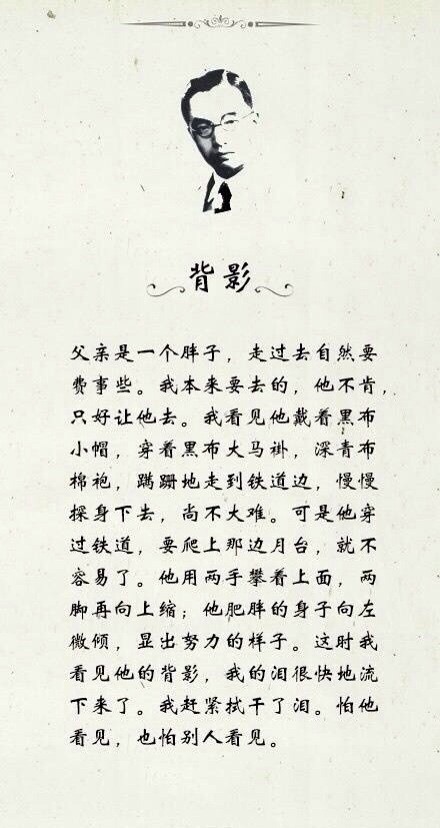 背影
父亲是一个胖子，走过去自然要
费事些。我本来要去的，他不肯，
只好让他去。我看见他戴着黑布
小帽，穿着黑布大马褂，深青布
棉袍，蹒跚地走到铁道边，慢慢
探身下去，尚不大难。可是他穿
过铁道，要爬上那边月台，就不
容易了。他用两手攀着上面，两
脚再向上缩；他肥胖的身子向左
微倾，显出努力的样子。这时我
看见他的背影，我的泪很快地流
下来了。我赶紧拭干了泪。怕他
看见，也怕别人看见。